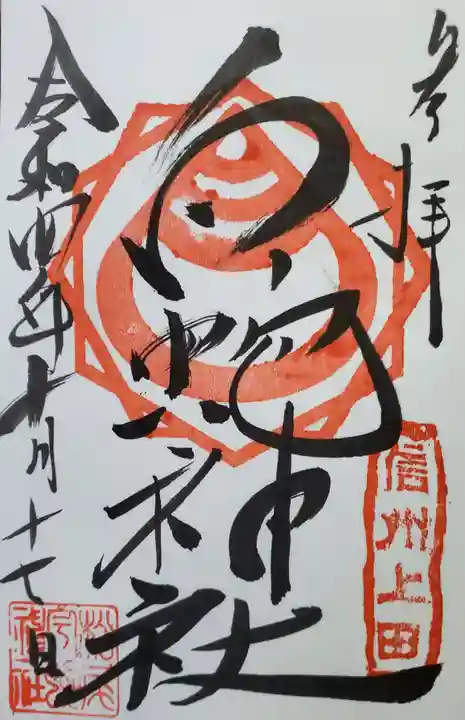 奉拝
信州上田
白蛇神社
令和四年十月十七日